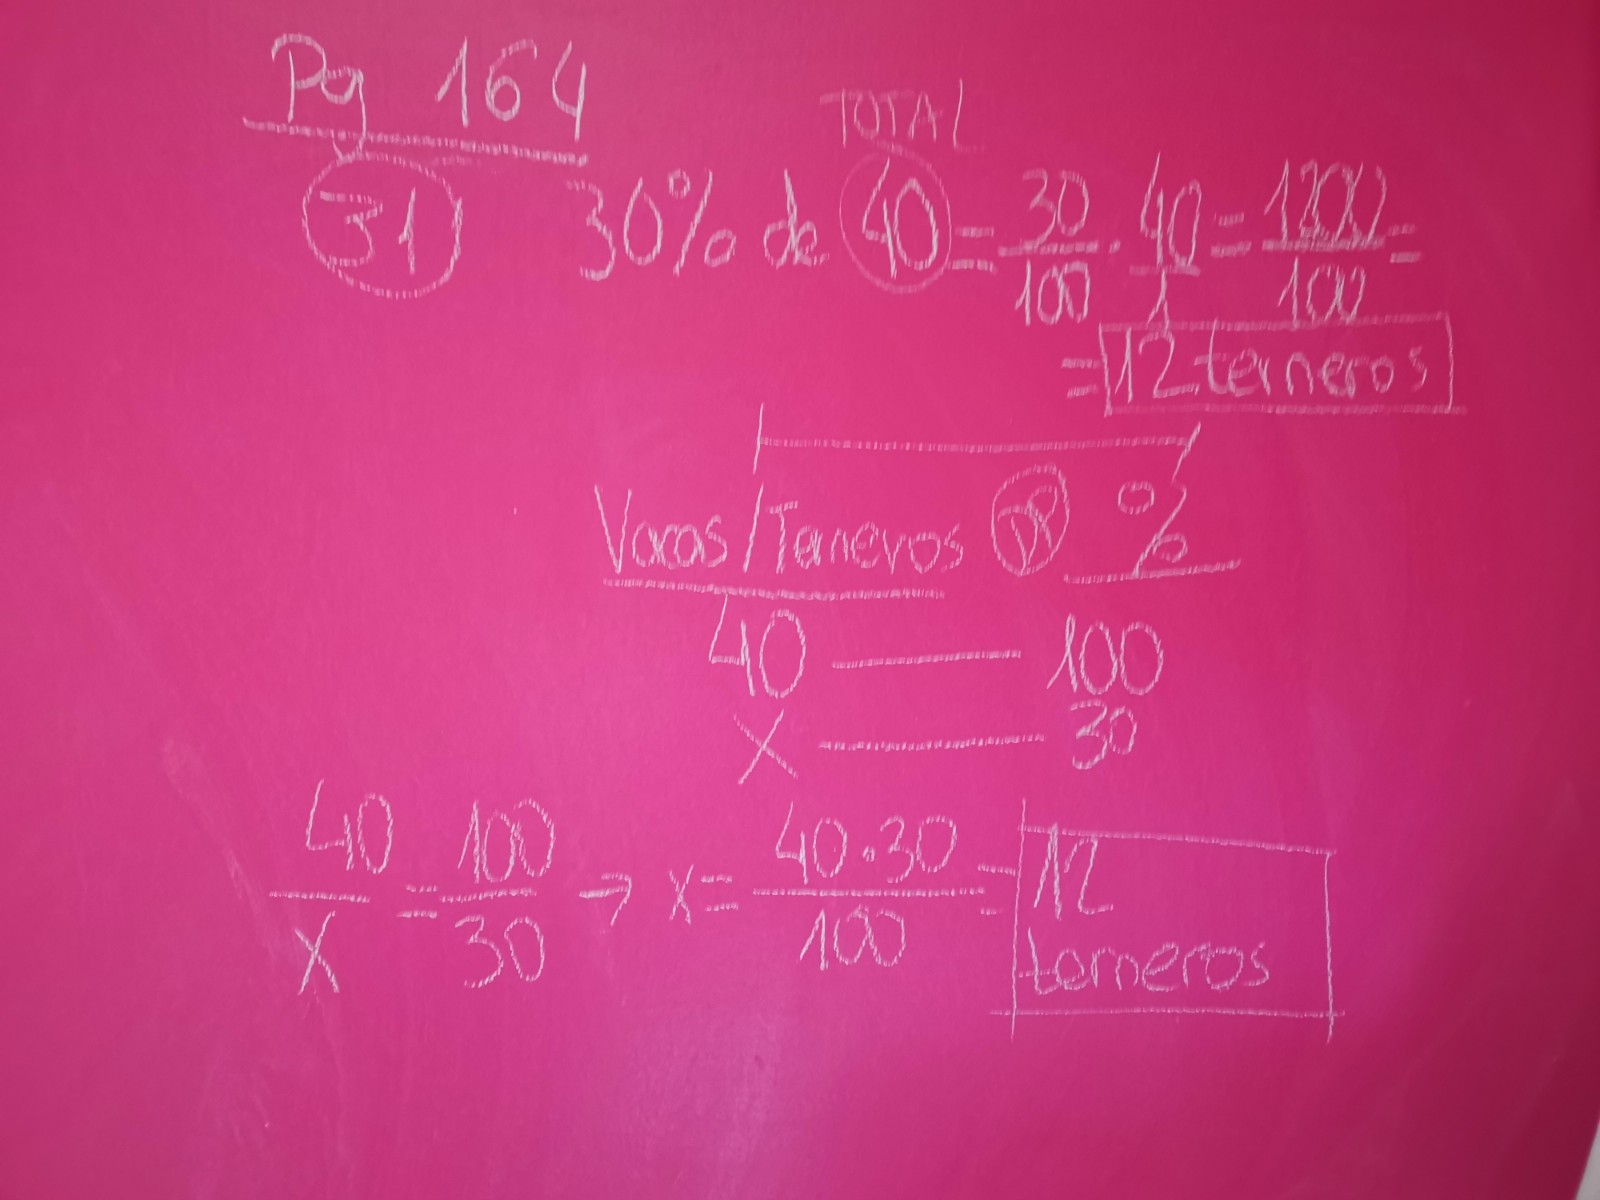 Pg 164
TOTAL
31 30% de 40 = 30/100 · 40/1 = 1200/100 =
= 12 terneros
Vacas/Terneros DP %
40 — 100
x — 30
40/x = 100/30 → x = 40·30/100 = 12
terneros